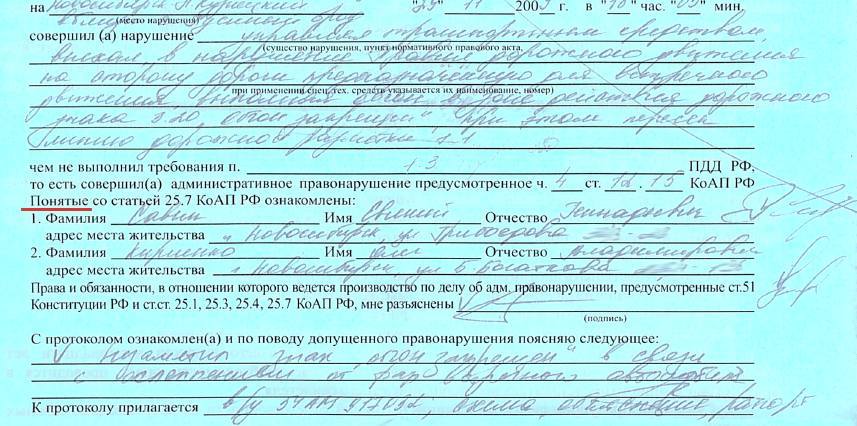 на Новосибирск П. Курийский "25" 11 2009 г. в "18" час. "05" мин.
(место нарушения)
совершил (а) нарушение управляя транспортным средством
(существо нарушения, пункт нормативного правового акта,
выехал, в нарушение Правил дорожного движения
на сторону дороги предназначенную для встречного
при применении спец.тех. средств указывается их наименование, номер)
движения, выполнил обгон в зоне действия дорожного
знака 3.20 "обгон запрещен", при этом пересек
линию дорожной разметки 1.1
чем не выполнил требования п. 1.3 ПДД РФ,
то есть совершил(а) административное правонарушение предусмотренное ч. 4 ст. 12.15 КоАП РФ
Понятые со статьей 25.7 КоАП РФ ознакомлены:
1. Фамилия Савин Имя Евгений Отчество Геннадьевич
адрес места жительства г. Новосибирск, ул Грибоедова
2. Фамилия Кириенко Имя Олег Отчество Владимирович
адрес места жительства г. Новосибирск, ул Б. Богаткова
Права и обязанности, в отношении которого ведется производство по делу об адм. правонарушении, предусмотренные ст.51
Конституции РФ и ст.ст. 25.1, 25.3, 25.4, 25.7 КоАП РФ, мне разъяснены
(подпись)
С протоколом ознакомлен(а) и по поводу допущенного правонарушения поясняю следующее:
V Незаметил знак "обгон запрещен" в связи
с ослеплением от фар встречного автомобиля
К протоколу прилагается в/у 54 АМ 917032, схема, объяснение, рапорт